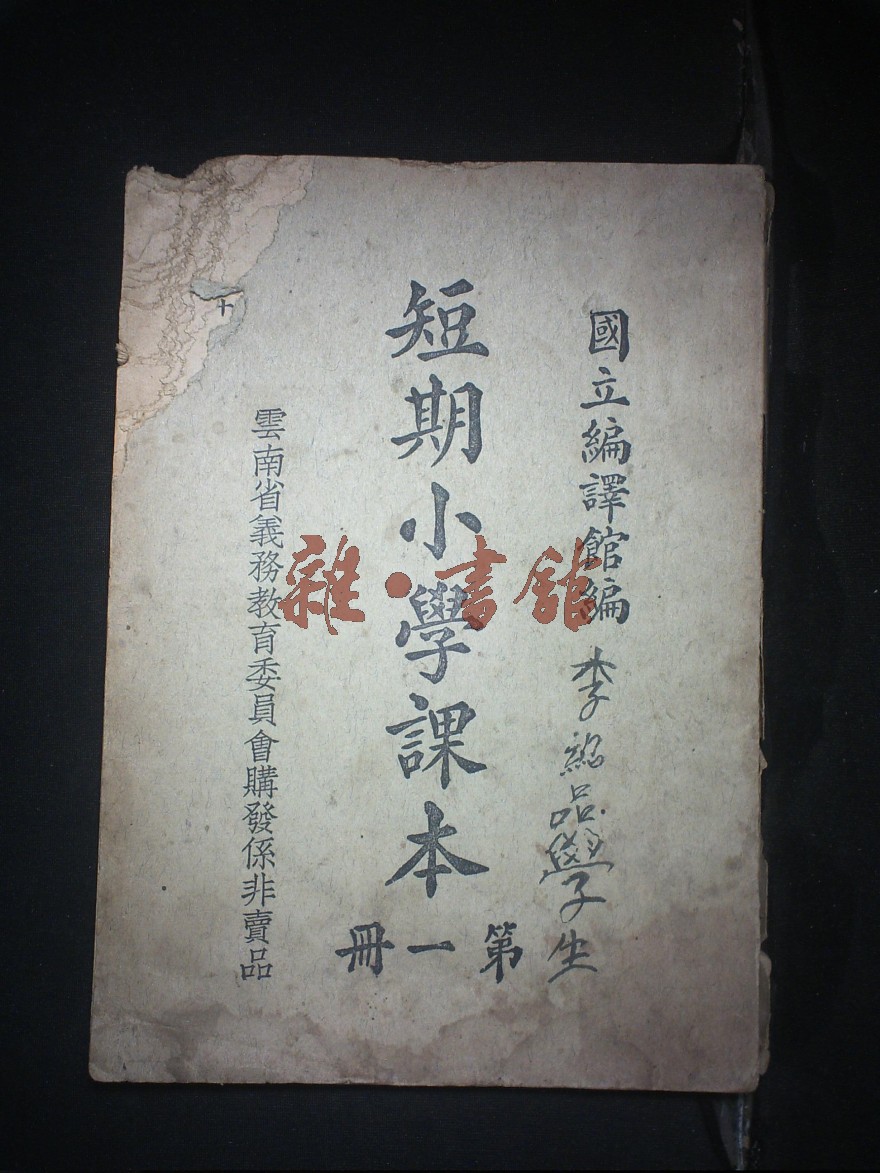 國立編譯館編
李 品學生
短期小學課本
第一冊
雲南省義務教育委員會購發係非賣品
十
雜·書館